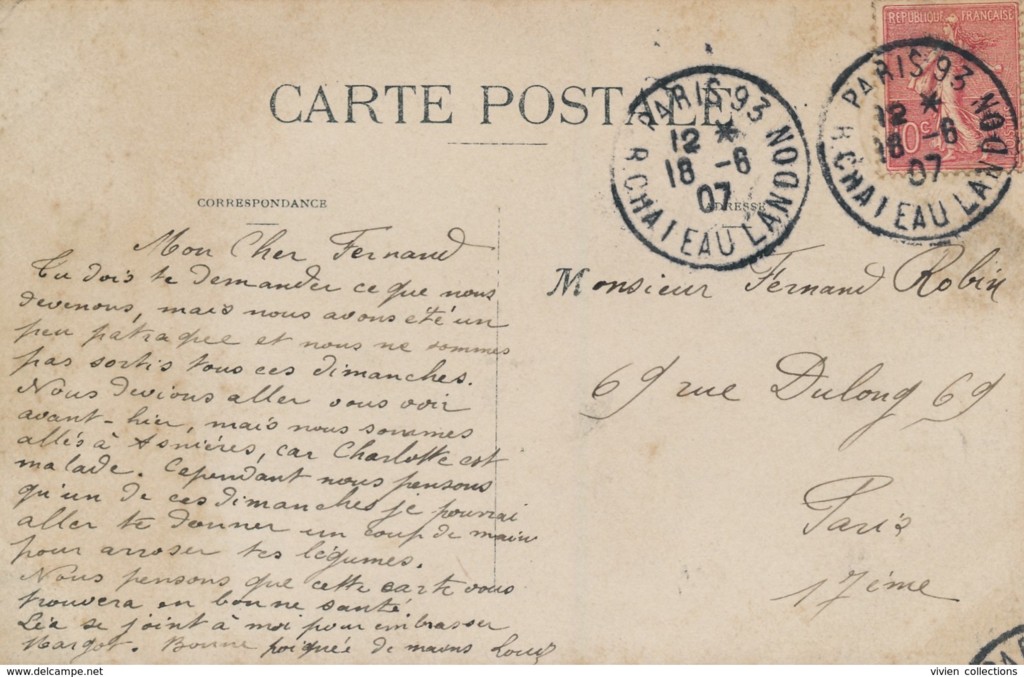 CARTE POSTALE
CORRESPONDANCE
ADRESSE
RÉPUBLIQUE FRANÇAISE
10c
PARIS 93
12 *
18 -6
07
R. CHATEAU LANDON
PARIS 93
12 *
18 -6
07
R. CHATEAU LANDON
Mon Cher Fernand
Tu dois te demander ce que nous
devenons, mais nous avons été un
peu patraque et nous ne sommes
pas sortis tous ces dimanches.
Nous devions aller vous voir
avant-hier, mais nous sommes
allés à Asnières, car Charlotte est
malade. Cependant nous pensons
qu'un de ces dimanches je pourrai
aller te donner un coup de main
pour arroser tes légumes.
Nous pensons que cette carte vous
trouvera en bonne santé
Léa se joint à moi pour embrasser
Margot. Bonne poignée de mains
Monsieur Fernand Robin
69 rue Dulong 69
Paris
17ième
PAR
www.delcampe.net
vivien collections